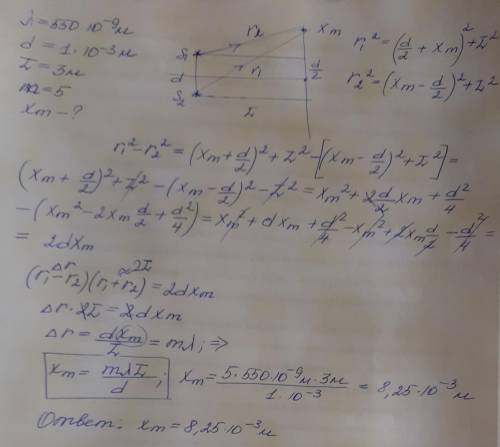 λ = 550·10⁻⁹м
d = 1·10⁻³м
L = 3м
m = 5
xm - ?
S₁
S₂
d
r₂
r₁
L
xm
d/2
r₁² = (d/2 + xm)² + L²
r₂² = (xm - d/2)² + L²
r₁² - r₂² = (xm + d/2)² + L² - [(xm - d/2)² + L²] =
(xm + d/2)² + L² - (xm - d/2)² - L² = xm² + 2d/2 xm + d²/4
- (xm² - 2xm d/2 + d²/4) = xm² + dxm + d²/4 - xm² + 2xm d/2 - d²/4 =
= 2dxm
Δr ≈2L
(r₁ - r₂)(r₁ + r₂) = 2dxm
Δr · 2L = 2dxm
Δr = d(xm)/L = mλ; ⇒
xm = mλL/d; xm = 5·550·10⁻⁹м·3м/1·10⁻³ = 8,25·10⁻³м
Ответ: xm = 8,25·10⁻³м